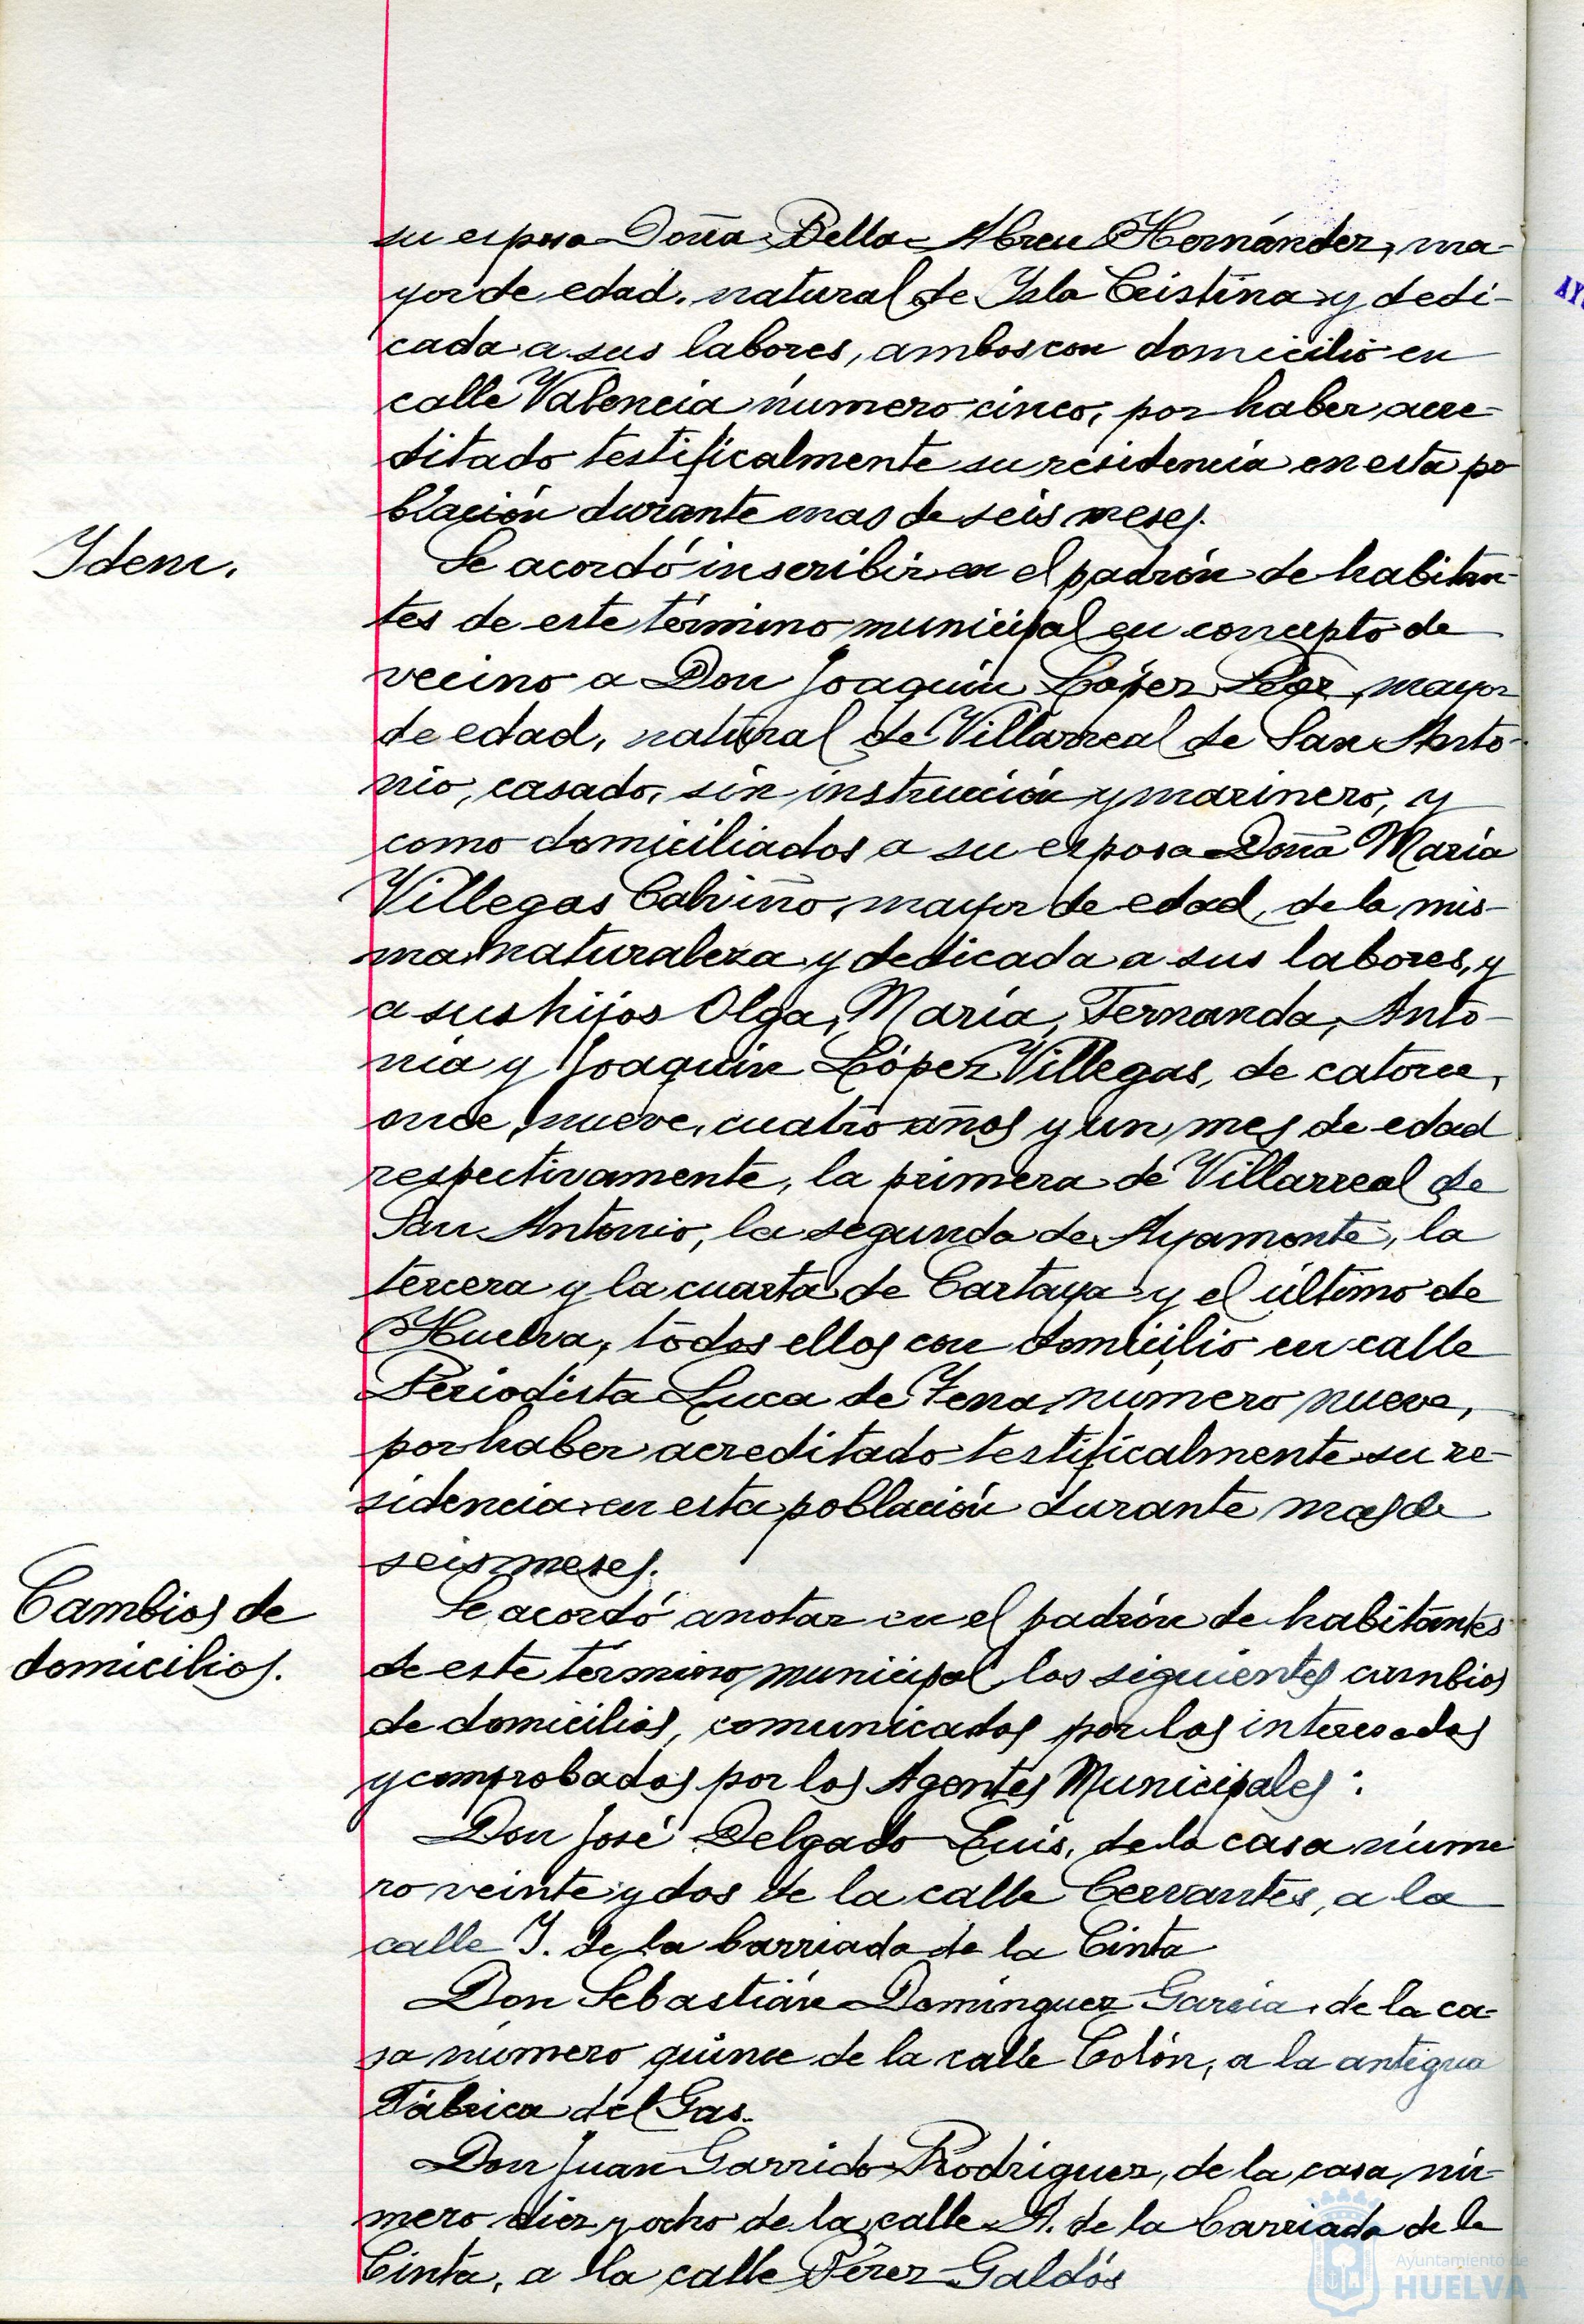 su esposa Doña Bella Abreu Hernández, ma-
yor de edad, natural de Isla Cristina y dedi-
cada a sus labores, ambos con domicilio en
calle Valencia número cinco, por haber acre-
ditado testificalmente su residencia en esta po
blación durante mas de seis meses.
Idem.
Se acordó inscribir en el padrón de habitan-
tes de este término municipal en concepto de
vecino a Don Joaquín López mayor
de edad, natural de Villarreal de San Anto-
nio, casado, sin instrucción y marinero, y
como domiciliados a su esposa Doña María
Villegas Calviño, mayor de edad, de la mis-
ma naturaleza y dedicada a sus labores, y
a sus hijos Olga, María, Fernanda, Anto-
nia y Joaquín López Villegas, de catorce,
once, nueve, cuatro años y un mes de edad
respectivamente, la primera de Villarreal de
San Antonio, la segunda de Ayamonte, la
tercera y la cuarta de Cartaya y el último de
Huelva, todos ellos con domicilio en calle
Periodista Luca de Tena número nueve,
por haber acreditado testificalmente su re-
sidencia en esta población durante mas de
seis meses.
Cambios de
domicilios.
Se acordó anotar en el padrón de habitantes
de este término municipal los siguientes cambios
de domicilios, comunicados por los interesados
y comprobados por los Agentes Municipales:
Don José Delgado Luis, de la casa núme
ro veinte y dos de la calle Cervantes, a la
calle I. de la barriada de la Cinta
Don Sebastián Domínguez García, de la ca-
sa número quince de la calle Colón, a la antigua
Fábrica del Gas.
Don Juan Garrido Rodríguez, de la casa nú-
mero diez y ocho de la calle A. de la barriada de la
Cinta, a la calle Pérez Galdós
Ayuntamiento de
HUELVA